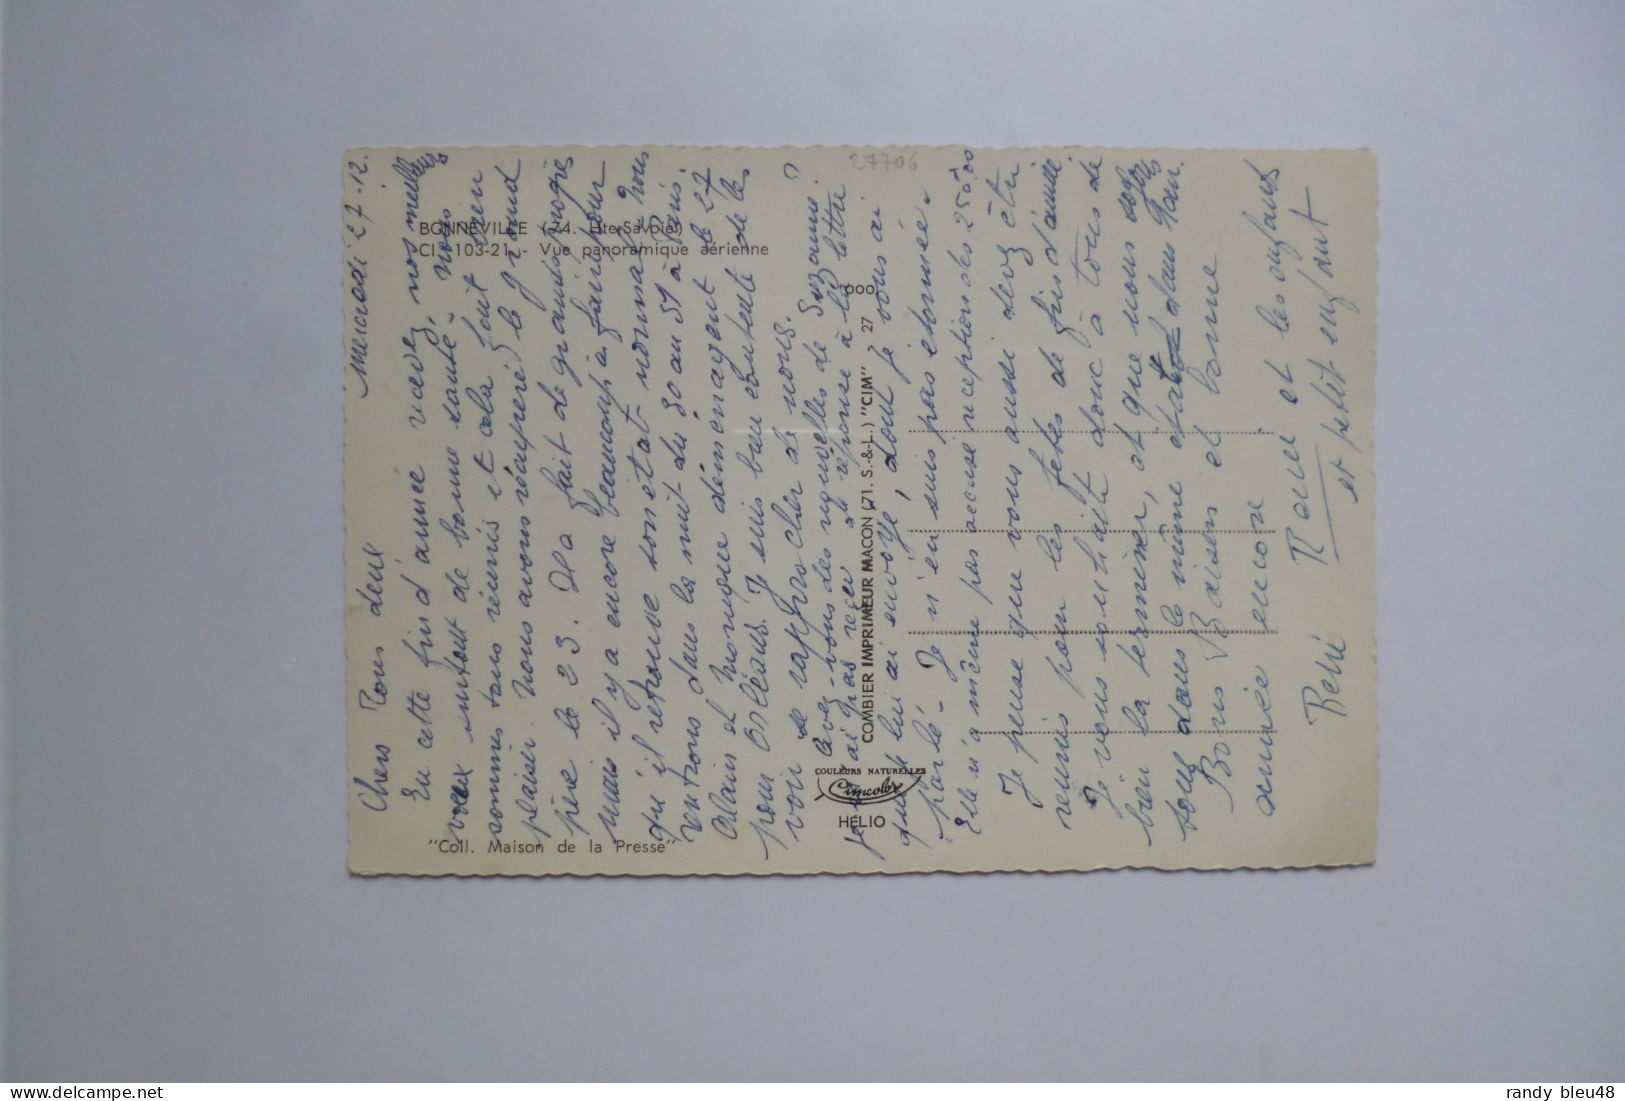 27706
BONNEVILLE (74. Hte-Savoie)
CI 103-21 - Vue panoramique aérienne
"Coll. Maison de la Presse"
COMBIER IMPRIMEUR MACON (71. S.-&-L.) "CIM" 27
COULEURS NATURELLES
Cimcolor
HÉLIO
Mercredi 27.12.
Chers Tous deux
En cette fin d'année recevez nos meilleurs
vœux surtout de bonne santé, nous
sommes tous réunis et cela fait bien
plaisir. Nous avons récupéré le grand
père le 23. Il a fait de grands progrès
mais il y a encore beaucoup à faire pour
qu'il retrouve son état normal. Nous
rentrons dans la nuit du 30 au 31 à Paris.
Alain et Monique déménagent le 27
pour Orléans. Je suis bien contente de les
voir se rapprocher de nous.
Avez-vous des nouvelles de Suzanne ?
je n'ai pas reçu de réponse à la lettre
que je lui ai envoyé, dont je vous ai
parlé. Je n'en suis pas étonnée.
Elle n'a même pas accusé réception des
Je pense que vous aussi devez être
réunis pour les fêtes de fin d'année
Je vous souhaite donc à tous de
bien la terminer, et que nous soyons
tous dans le même état dans 1 an.
Bons Baisers et bonne
année encore
René Renée et les enfants
et petit enfant
randy bleu48